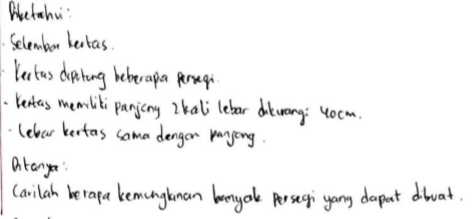 Diketahui:
- Selembar kertas.
- Kertas dipotong beberapa persegi.
- Kertas memiliki panjang 2 kali lebar dikurangi 40cm.
- Lebar kertas sama dengan panjang.
Ditanya:
Carilah berapa kemungkinan banyak persegi yang dapat dibuat.